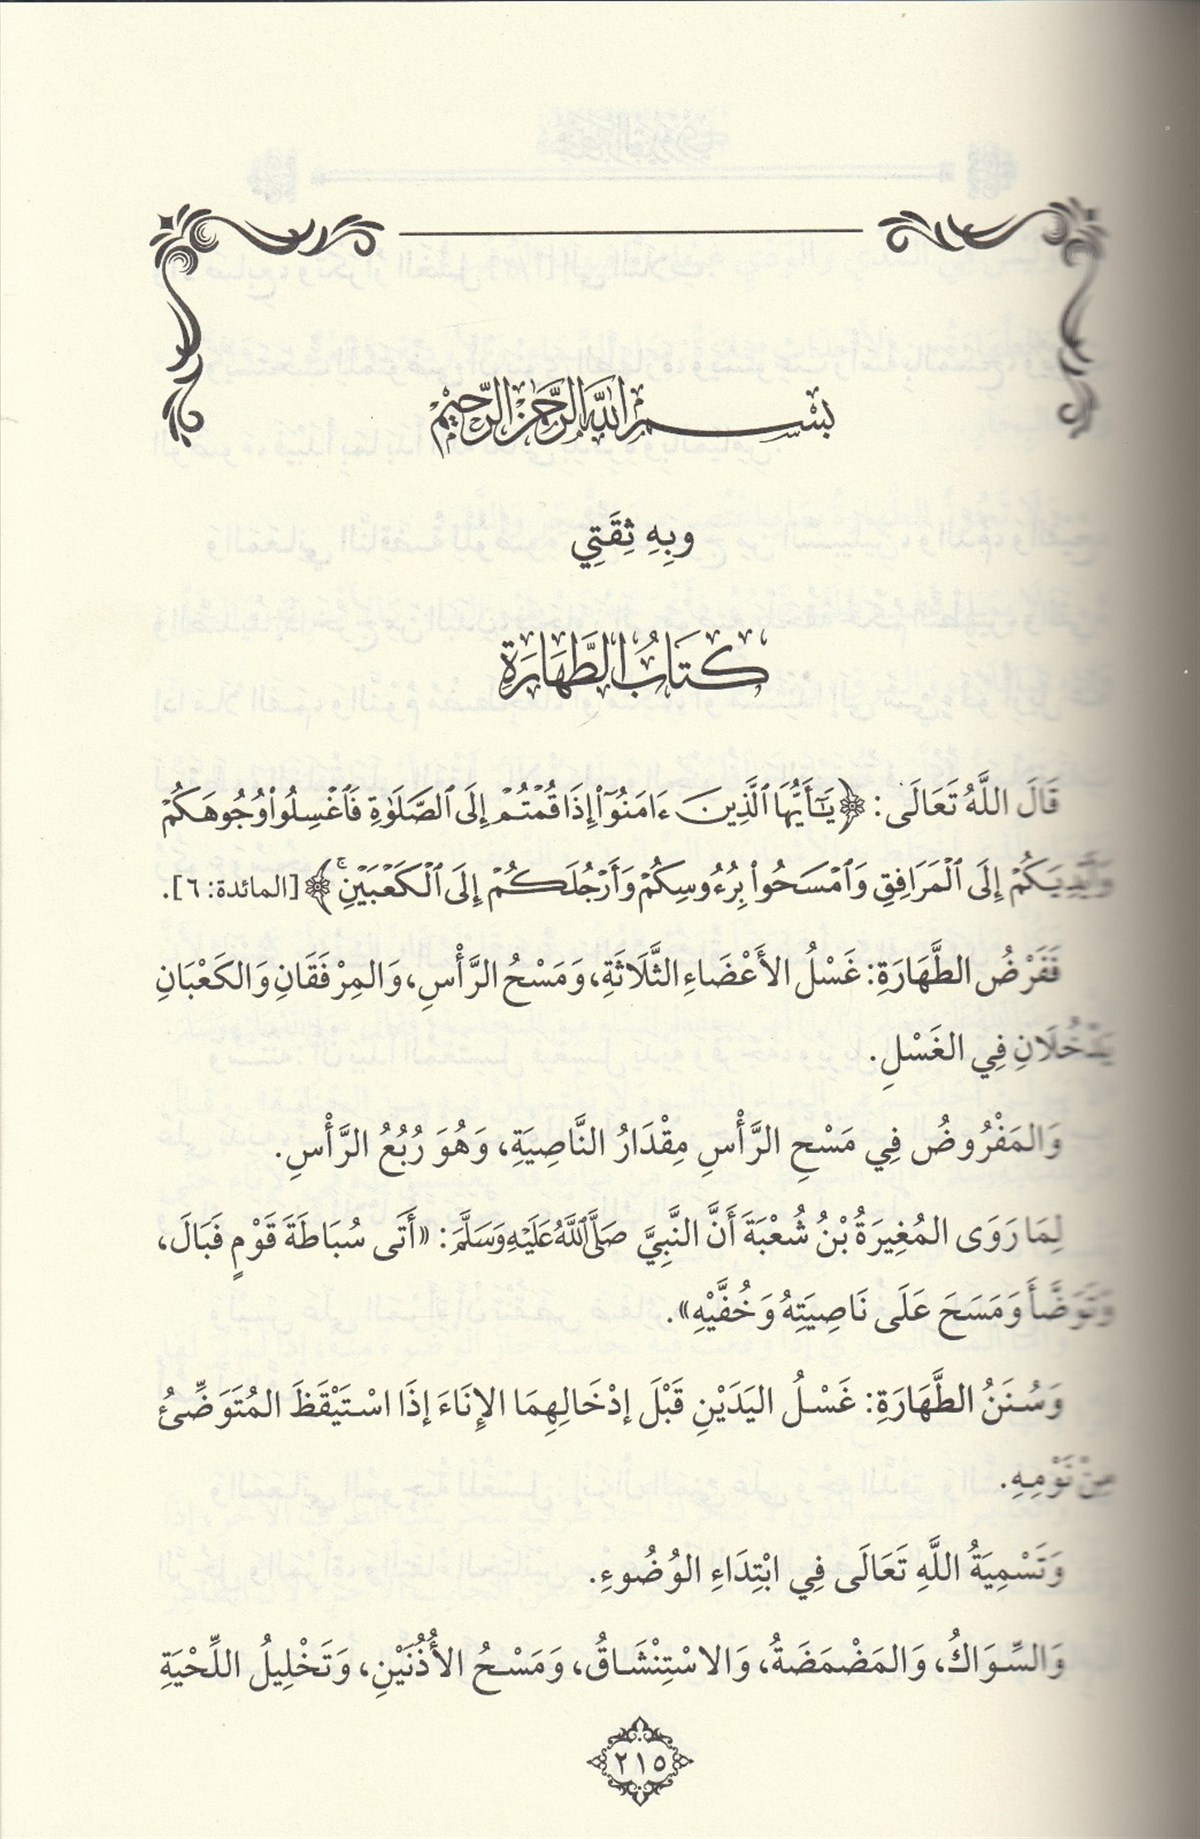 بِسْمِ اللَّهِ الرَّحْمَٰنِ الرَّحِيمِ
وبِهِ ثِقَتِي
كِتَابُ الطَّهَارَةِ
قَالَ اللَّهُ تَعَالَى: ﴿يَٰٓأَيُّهَا ٱلَّذِينَ ءَامَنُوٓاْ إِذَا قُمۡتُمۡ إِلَى ٱلصَّلَوٰةِ فَٱغۡسِلُواْ وُجُوهَكُمۡ
وَأَيۡدِيَكُمۡ إِلَى ٱلۡمَرَافِقِ وَٱمۡسَحُواْ بِرُءُوسِكُمۡ وَأَرۡجُلَكُمۡ إِلَى ٱلۡكَعۡبَيۡنِۚ﴾ [المائدة: ٦].
فَفَرْضُ الطَّهَارَةِ: غَسْلُ الأَعْضَاءِ الثَّلَاثَةِ، وَمَسْحُ الرَّأْسِ، وَالمِرْفَقَانِ وَالكَعْبَانِ
يَدْخُلَانِ فِي الغَسْلِ.
وَالمَفْرُوضُ فِي مَسْحِ الرَّأْسِ مِقْدَارُ النَّاصِيَةِ، وَهُوَ رُبُعُ الرَّأْسِ.
لِمَا رَوَى المُغِيرَةُ بْنُ شُعْبَةَ أَنَّ النَّبِيَّ صَلَّى اللَّهُ عَلَيْهِ وَسَلَّمَ: «أَتَى سُبَاطَةَ قَوْمٍ فَبَالَ،
وَتَوَضَّأَ وَمَسَحَ عَلَى نَاصِيَتِهُ وَخُفَّيْهِ».
وَسُنَنُ الطَّهَارَةِ: غَسْلُ اليَدَيْنِ قَبْلَ إدْخَالِهِمَا الإِنَاءَ إذَا اسْتَيْقَظَ المُتَوَضِّئُ
مِنْ نَوْمِهِ.
وَتَسْمِيَةُ اللَّهِ تَعَالَى فِي ابْتِدَاءِ الوُضُوءِ.
وَالسِّوَاكُ، وَالمَضْمَضَةُ، وَالاسْتِنْشَاقُ، وَمَسْحُ الأُذُنَيْنِ، وَتَخْلِيلُ اللِّحْيَةِ
٢١٥